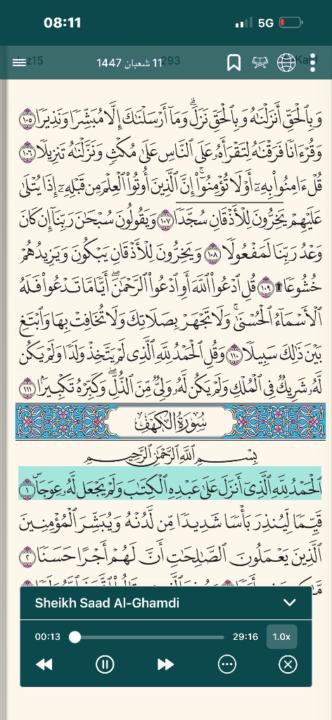 08:11 5G
z15 11 شعبان 1447 293 Ka
وَبِالْحَقِّ أَنزَلْنَاهُ وَبِالْحَقِّ نَزَلَ ۗ وَمَا أَرْسَلْنَاكَ إِلَّا مُبَشِّرًا وَنَذِيرًا ١٠٥
وَقُرْءَانًا فَرَقْنَاهُ لِتَقْرَأَهُ عَلَى النَّاسِ عَلَىٰ مُكْثٍ وَنَزَّلْنَاهُ تَنزِيلًا ١٠٦
قُلْ ءَامِنُوا بِهِ أَوْ لَا تُؤْمِنُوا ۚ إِنَّ الَّذِينَ أُوتُوا الْعِلْمَ مِن قَبْلِهِ إِذَا يُتْلَىٰ
عَلَيْهِمْ يَخِرُّونَ لِلْأَذْقَانِ سُجَّدًا ١٠٧ وَيَقُولُونَ سُبْحَانَ رَبِّنَا إِن كَانَ
وَعْدُ رَبِّنَا لَمَفْعُولًا ١٠٨ وَيَخِرُّونَ لِلْأَذْقَانِ يَبْكُونَ وَيَزِيدُهُمْ
خُشُوعًا ۩ ١٠٩ قُلِ ادْعُوا اللَّهَ أَوِ ادْعُوا الرَّحْمَٰنَ ۖ أَيًّا مَّا تَدْعُوا فَلَهُ
الْأَسْمَاءُ الْحُسْنَىٰ ۚ وَلَا تَجْهَرْ بِصَلَاتِكَ وَلَا تُخَافِتْ بِهَا وَابْتَغِ
بَيْنَ ذَٰلِكَ سَبِيلًا ١١٠ وَقُلِ الْحَمْدُ لِلَّهِ الَّذِي لَمْ يَتَّخِذْ وَلَدًا وَلَمْ يَكُن
لَّهُ شَرِيكٌ فِي الْمُلْكِ وَلَمْ يَكُن لَّهُ وَلِيٌّ مِّنَ الذُّلِّ ۖ وَكَبِّرْهُ تَكْبِيرًا ١١١
سُورَةُ الْكَهْفِ
بِسْمِ اللَّهِ الرَّحْمَٰنِ الرَّحِيمِ
الْحَمْدُ لِلَّهِ الَّذِي أَنزَلَ عَلَىٰ عَبْدِهِ الْكِتَابَ وَلَمْ يَجْعَل لَّهُ عِوَجًا ۜ ١
قَيِّمًا لِّيُنذِرَ بَأْسًا شَدِيدًا مِّن لَّدُنْهُ وَيُبَشِّرَ الْمُؤْمِنِينَ
الَّذِينَ يَعْمَلُونَ الصَّالِحَاتِ أَنَّ لَهُمْ أَجْرًا حَسَنًا ٢
Sheikh Saad Al-Ghamdi
00:13 29:16 1.0x